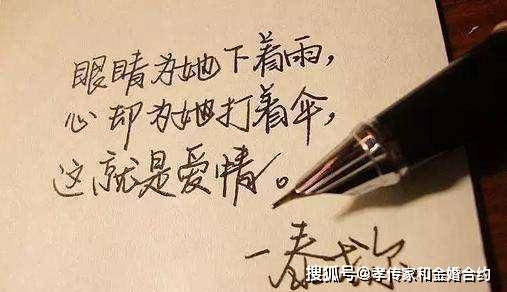 眼睛为她下着雨，
心却为她打着伞，
这就是爱情。
一泰戈尔
搜狐号@孝传家和金婚合约